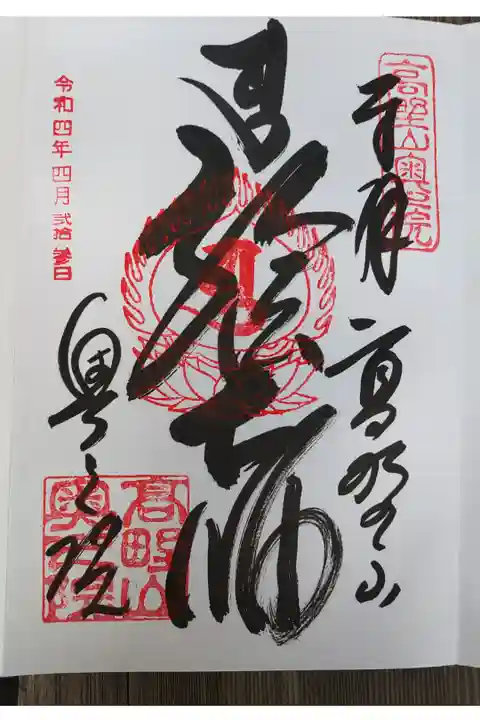 高野山奥之院
奉拝
高野山
弘法大師
令和四年四月弐拾参日
奥之院
高野山
奥之院